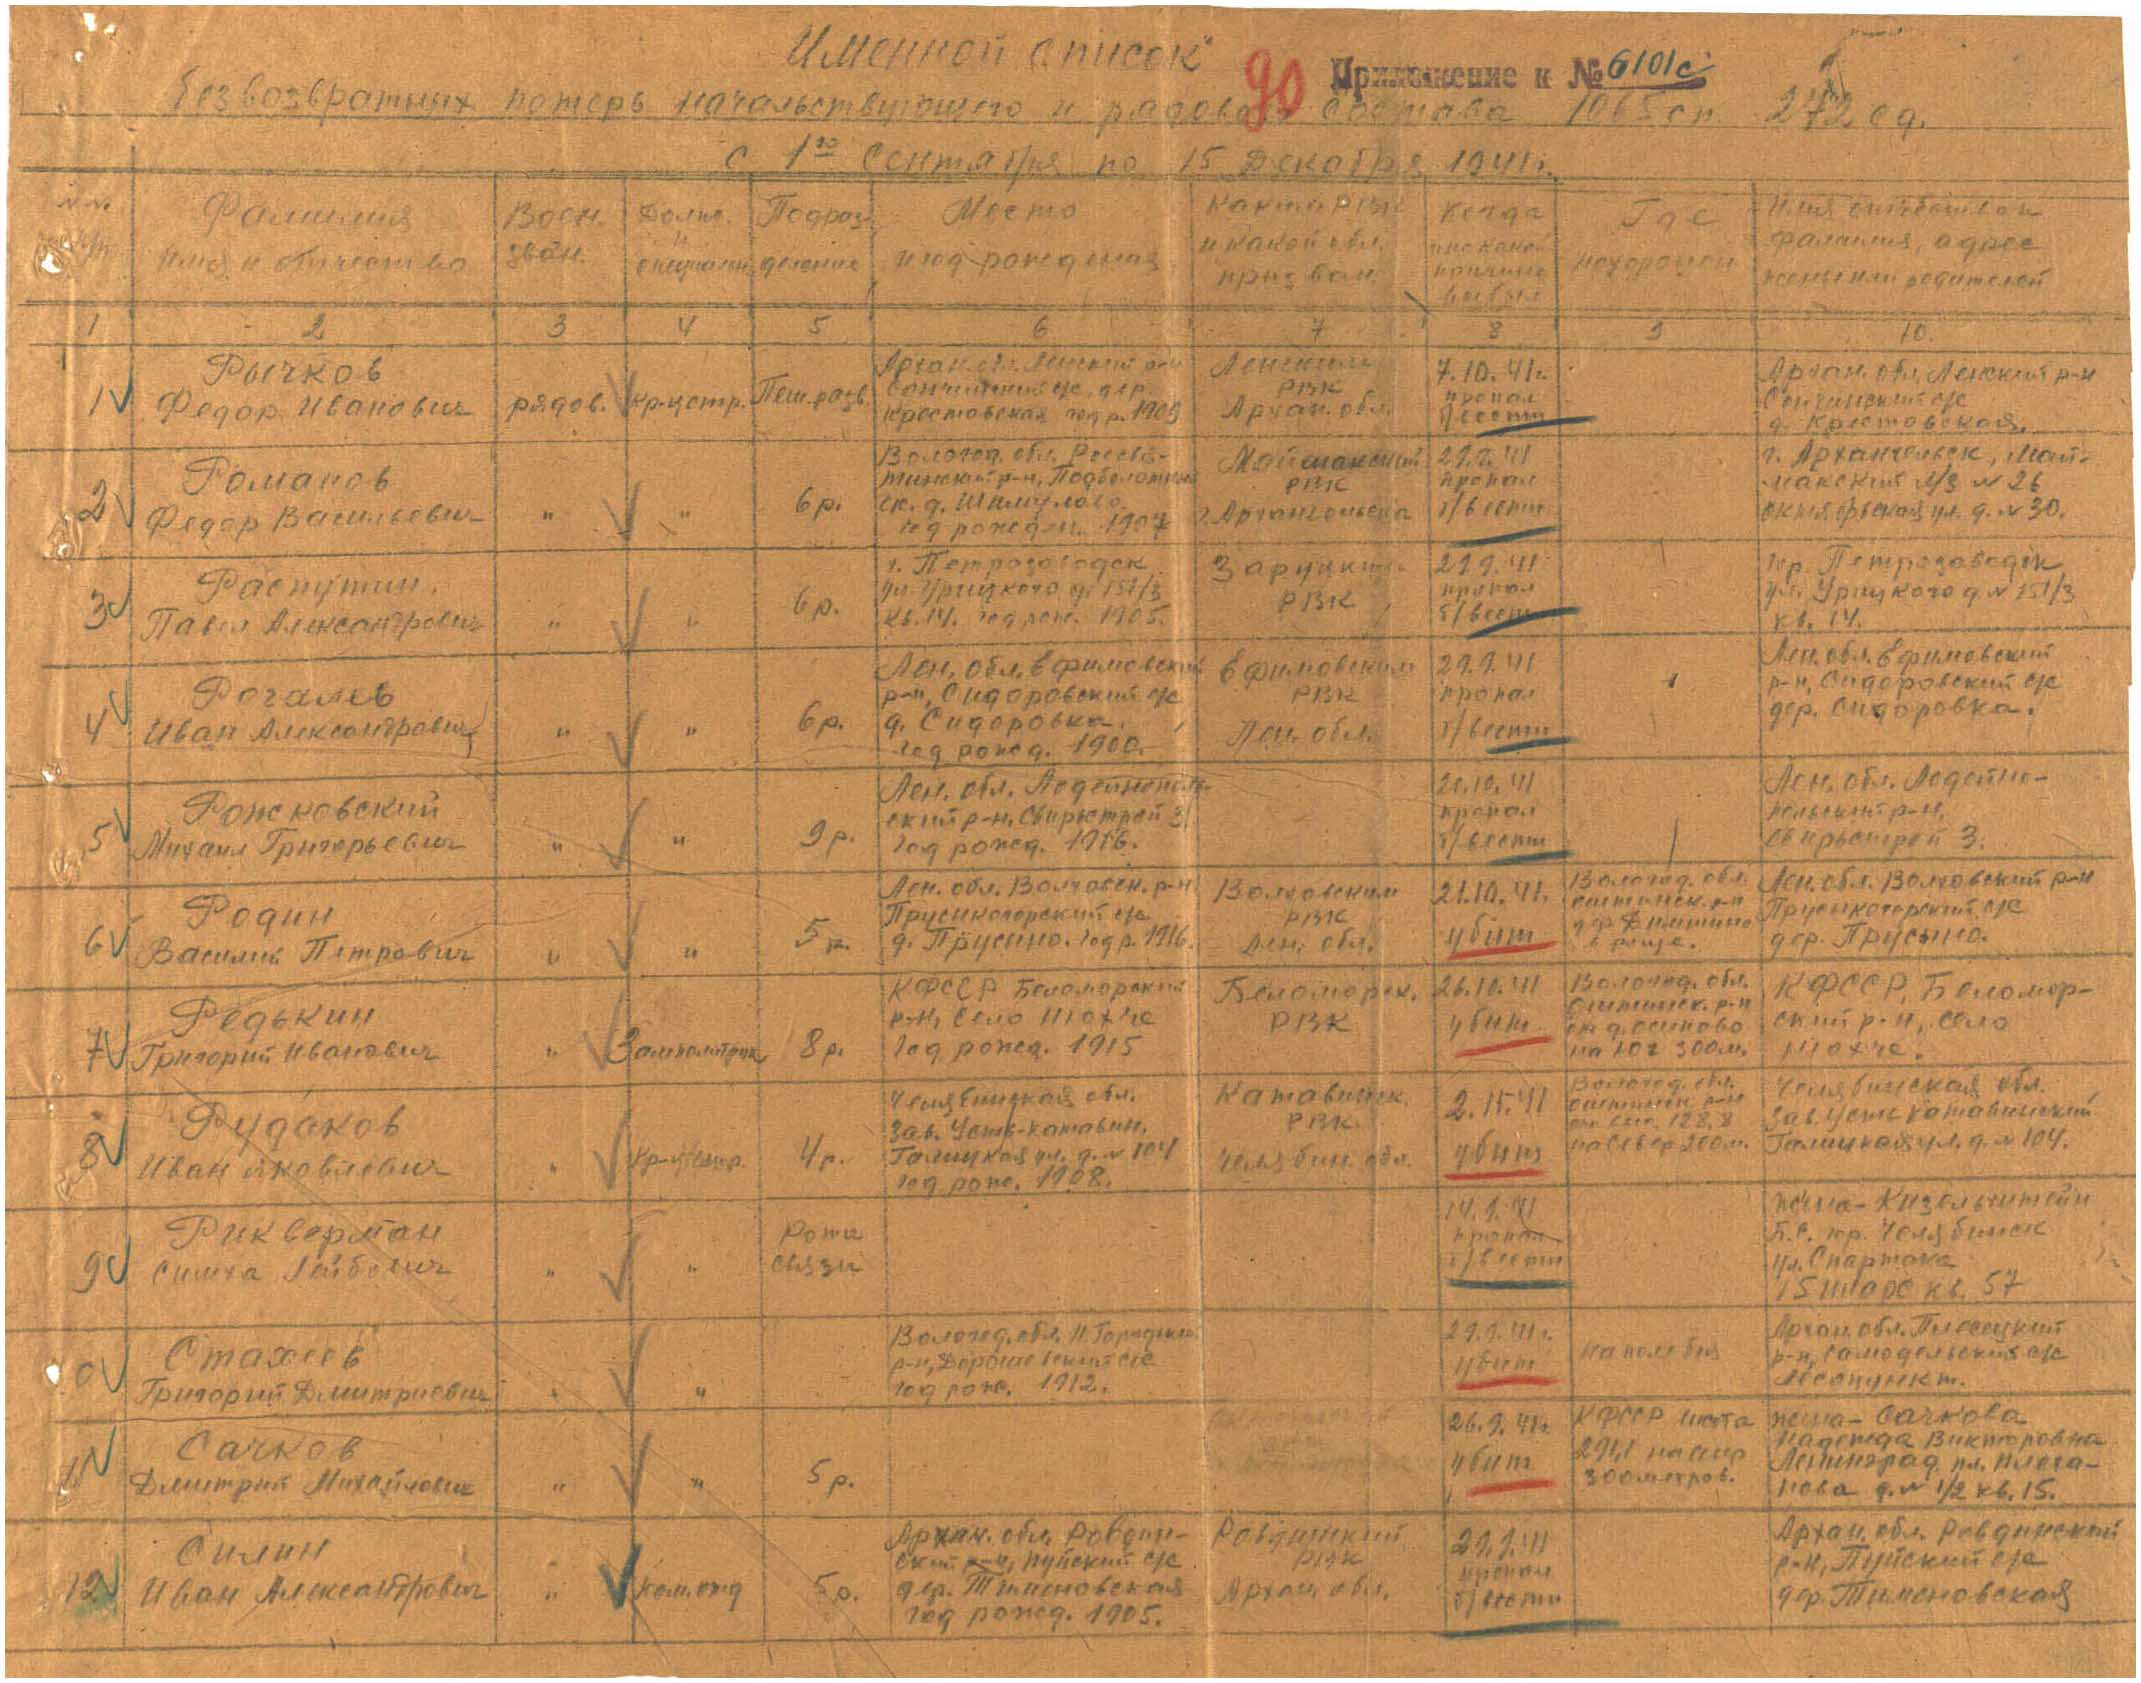 Именной список
90
Приложение к № 6101с
безвозвратных потерь начальствующего и рядового состава 1065 сп 272 сд.
с 1го Сентября по 15 Декабря 1941г.
Фамилия
имя и отчество
Воен.
зван.
Долж.
и
специальн.
Подраз
деление
Место
и год рождения
Каким РВК
и какой обл.
призван
Когда
и по какой
причине
выбыл
Где
похоронен
Имя отчество и
фамилия, адрес
жены или родителей
1 2 3 4 5 6 7 8 9 10
1
Рычков
Федор Иванович
рядов.
кр-цстр.
Пеш. разв.
Архан. обл. Ленский р-н
с/с, дер.
Крестовская год р. 1909
Ленским
РВК
Архан. обл.
7.10.41г.
пропал
б/вести
Архан. обл. Ленский р-н
с/с
д. Крестовская.
2
Романов
Федор Васильевич
"
"
6р.
Вологод. обл.
р-н,
ск. д.
год рожден. 1907
Маймакский
РВК
г. Архангельска
пропал
б/вести
г. Архангельск, май-
макский л/з № 26
октябрьская ул. д. № 30.
3
Распутин.
Павел Александрович
"
"
6р.
г. Петрозаводск
ул. Урицкого д. 151/3
кв. 14. год рож. 1905.
Зарецким
РВК
29.9.41
пропал
б/вести
гор. Петрозаводск
ул. Урицкого д. № 151/3
кв. 14.
4
Рогалев
Иван Александрович
"
"
6р.
Лен. обл. Ефимовский
р-н, Сидоровский с/с
д. Сидоровка.
год рожд. 1900.
Ефимовским
РВК
Лен. обл.
29.9.41
пропал
б/вести
Лен. обл. Ефимовский
р-н, Сидоровский с/с
дер. Сидоровка.
5
Рожковский
Михаил Григорьевич
"
"
9р.
Лен. обл. Лодейнополь-
ский р-н, Свирьстрой 3
год рожд. 1916.
пропал
б/вести
Лен. обл. Лодейно-
польский р-н,
Свирьстрой 3.
6
Родин
Василий Петрович
"
"
5р.
Лен. обл. Волховск. р-н
Прусыногорский с/с
д. Прусыно. год р. 1916.
Волховским
РВК
Лен. обл.
21.10.41г.
убит
Вологод. обл.
р-н
дер.
в роще.
Лен. обл. Волховский р-н
Прусыногорский с/с
дер. Прусыно.
7
Редькин
Григорий Иванович
"
Замполитрук
8р.
КФССР Беломорский
р-н, село
год рожд. 1915
Беломорск.
РВК
26.10.41
убит
Вологод. обл.
Оштинск. р-н
д. Осиново
на юг 300м.
КФССР, Беломор-
ский р-н, село
8
Рудаков
Иван Яковлевич
"
кр-цстр.
4р.
Челябинская обл.
зав. Усть-катавин.
Галицкая ул. д. № 104
год рож. 1908.
Катавинск.
РВК
Челябин. обл.
2.11.41
убит
Вологод. обл.
Оштинск р-н
128,8
на север 200м.
Челябинская обл.
зав. Усть катавинский
Галицкая ул. д. № 104.
9
Рикверман
Симха Лейбович
"
"
Рота
связи
пропал
б/вести
жена - Кизельштейн
Б.С. гор. Челябинск
ул. Спартака
15 кв. 57
10
Стахеев
Григорий Дмитриевич
"
"
Вологод. обл.
р-н, с/с
год рож. 1912.
29.9.41г.
убит
на поле боя
Архан. обл. Плесецкий
р-н, Самодельский с/с
Лесопункт.
11
Сачков
Дмитрий Михайлович
"
"
5р.
26.9.41г.
убит
КФССР
на север
300метров.
жена - Сачкова
Надежда Викторовна
Ленинград, пл. Плеха-
нова д. № 1/2 кв. 15.
12
Силин
Иван Александрович
"
Ком. отд
5р.
Архан. обл. Ровдин-
ский р-н, Пуйский с/с
дер. Тимоновская
год рожд. 1905.
Ровдинский
РВК
Архан. обл.
29.9.41
пропал
б/вести
Архан. обл. Ровдинский
р-н, Пуйский с/с
дер. Тимоновская